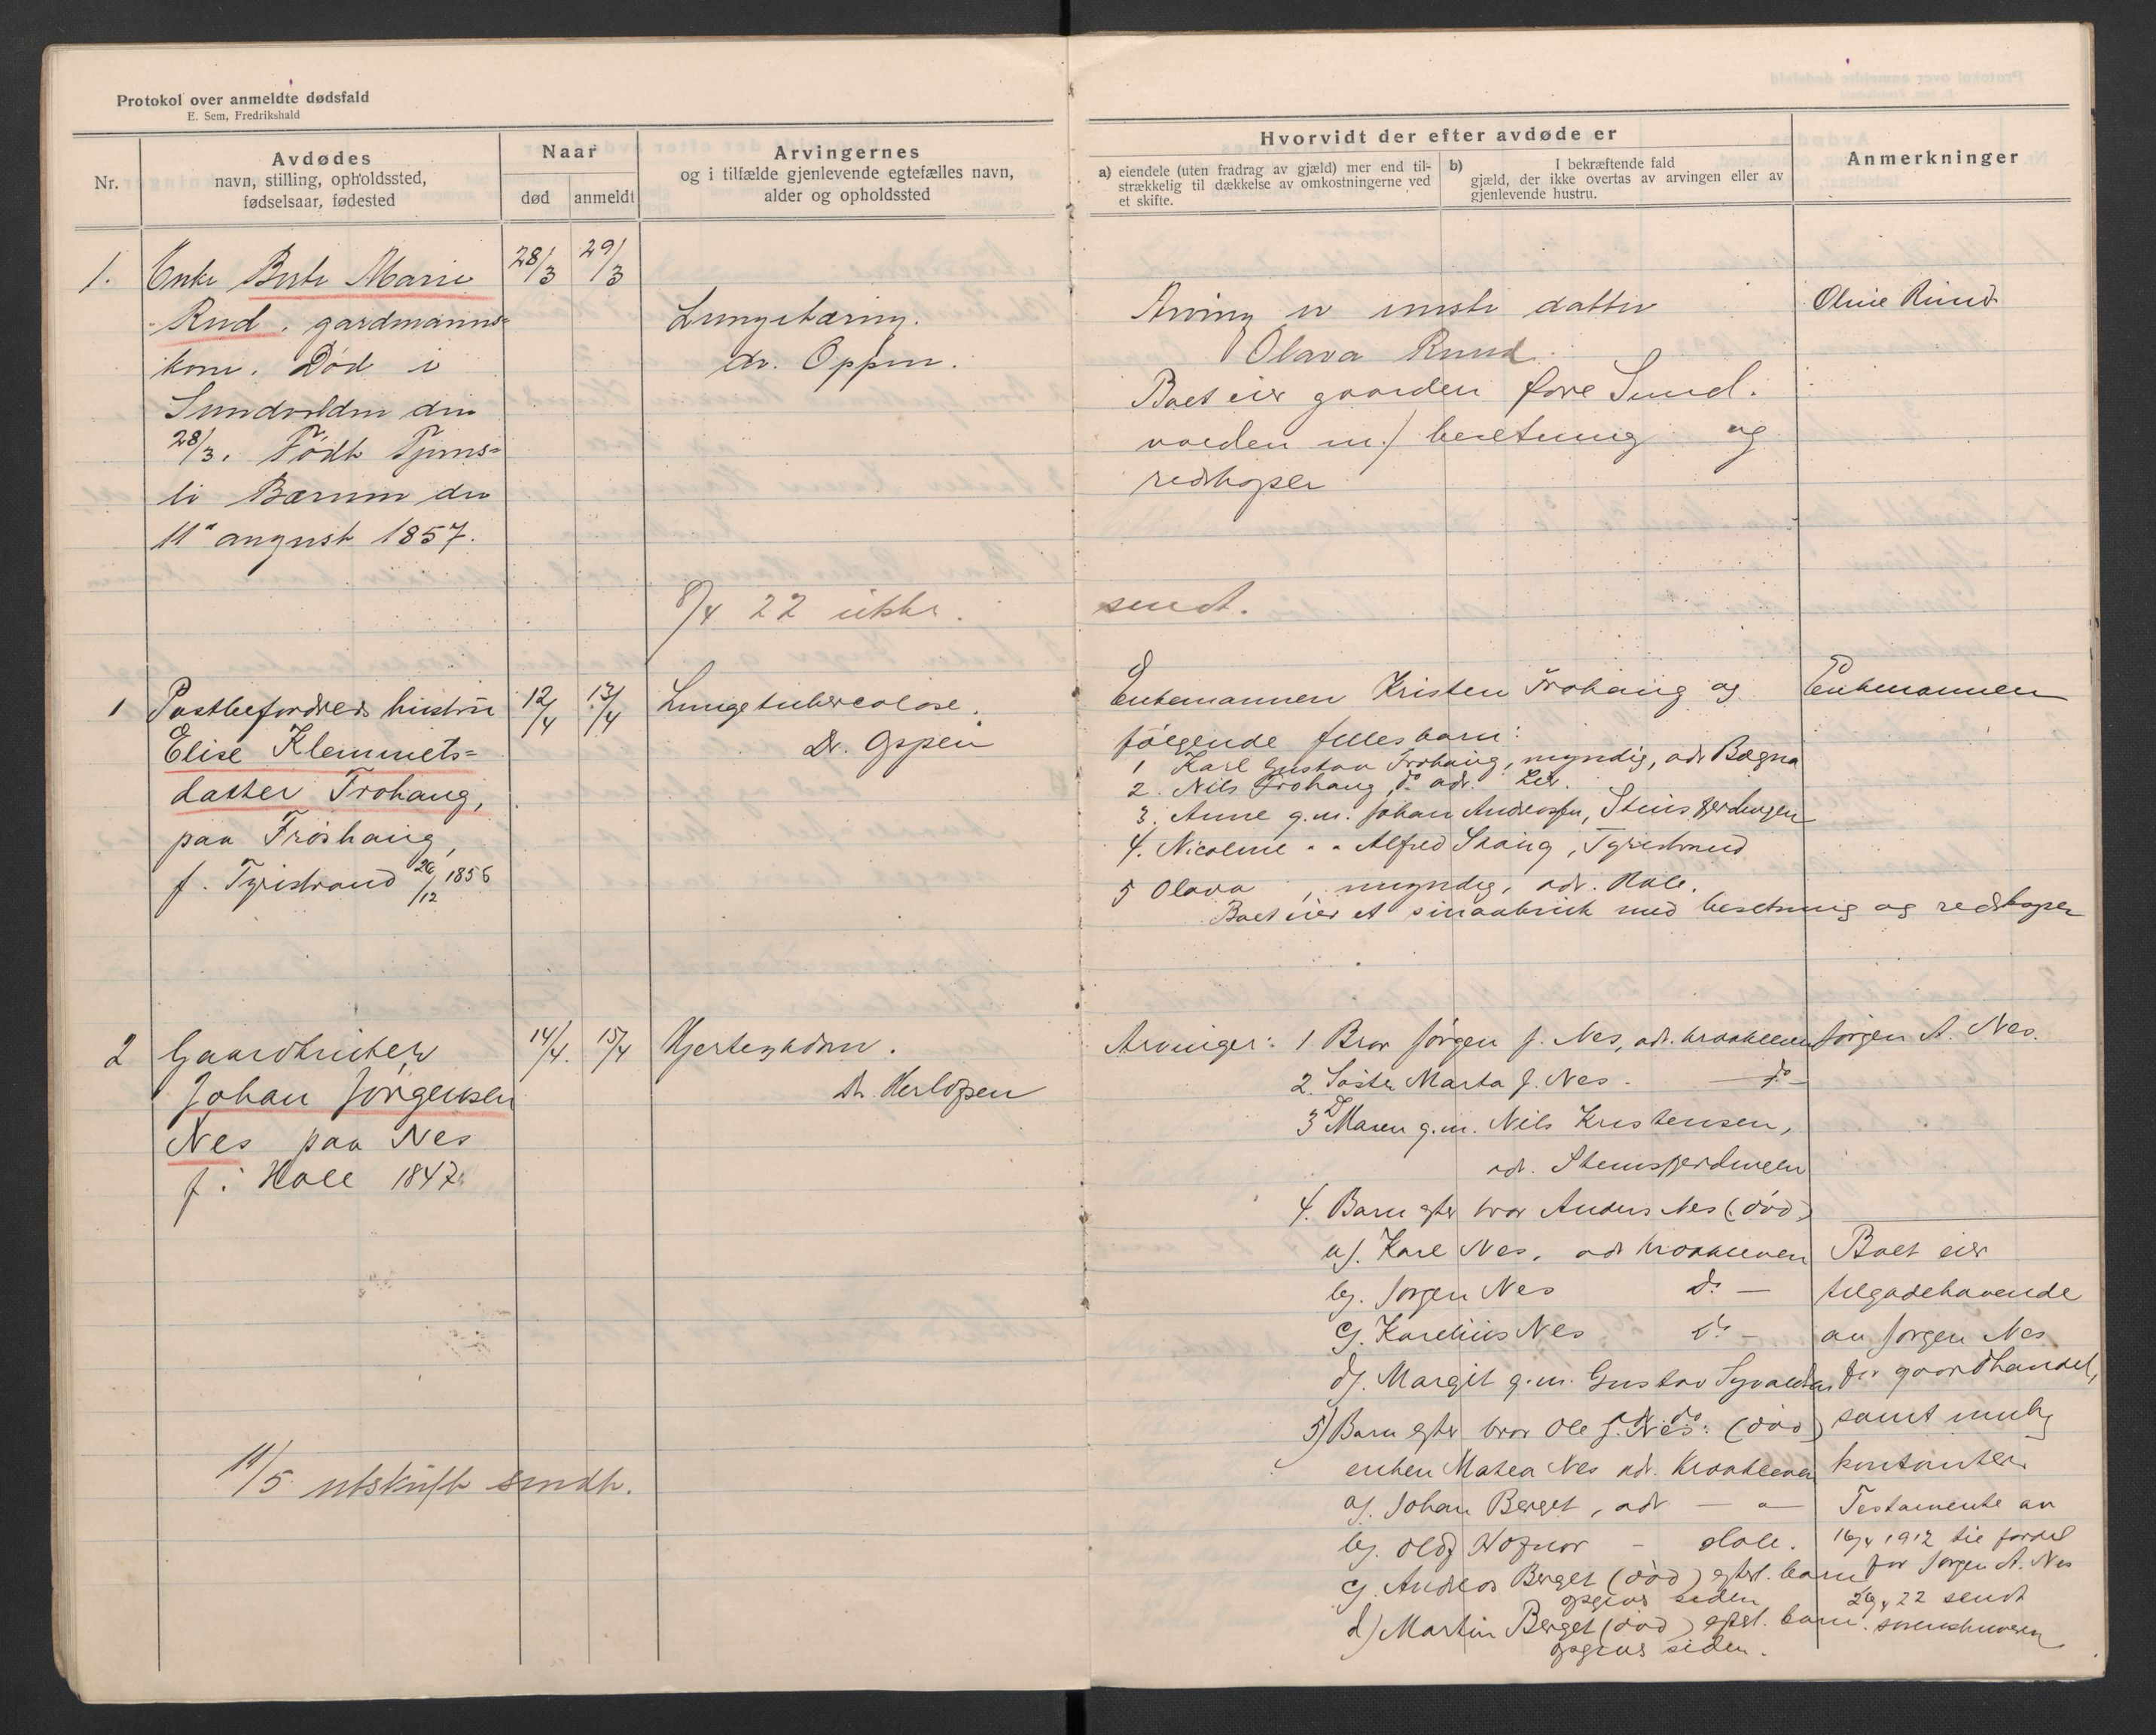 Protokol over anmeldte dødsfald
E. Sem, Fredrikshald
Nr.
Avdødes
navn, stilling, opholdssted,
fødselsaar, fødested
Naar
død
anmeldt
Arvingernes
og i tilfælde gjenlevende egtefælles navn,
alder og opholdssted
Hvorvidt der efter avdøde er
a) eiendele (uten fradrag av gjæld) mer end til-
strækkelig til dækkelse av omkostningerne ved
et skifte.
b) I bekræftende fald
gjæld, der ikke overtas av arvingen eller av
gjenlevende hustru.
Anmerkninger
1.
Enke Berte Marie
Rud, gardmanns=
kone. Død i
Sundvolden den
28/3. Født
li Bærum den
11te august 1857.
28/3
29/3
Lungetæring.
dr. Oppen.
Arving er eneste datter
Olava Ruud.
Boet eier gaarden
m/ besetning og
redskaper
8/4 22 ikke sendt.
1
Postbefordrers hustru
Elise Klemmets=
datter Frohaug,
paa Frøshaug,
f. Tyristrand 26/12
12/4
13/4
Lungetubercolose.
Dr. Oppen
Enkemannen Kristen Frohaug og
følgende fellesbarn:
1 Karl Gustav Frohaug, myndig, adr Bagna
2. Nils Frohaug, do adr. Lier.
3. Anne g.m. Johan Andersen, Stensfjerdingen
4. Nicoline " " Alfred Skaug, Tyristrand
5 Olava, myndig, adr. Hole.
Boet eier et smaabruk med besetning og redskaper
Enkemannen
2
Gaardbruker
Johan Jørgensen
Nes paa Nes
f. i Hole 1847.
14/4.
15/4
Hjertesykdom.
Dr. Herlofsen
Arvinger: 1 Bror Jørgen J. Nes, adr. Krokkleven
2. Søster Marta J. Nes. — do —
3 D Maren g.m. Nils Kristensen,
adr. Stensfjerdingen
4. Barn efter bror Anders Nes (død)
a/. Karl Nes, adr Krokkleven
b/. Jørgen Nes do —
c/. Karelius Nes do —
d/. Margit g.m. Gustav
do
5) Barn efter bror Ole J. Nes: (død)
enken Matea Nes adr. Krokkleven
a/. Johan Berget, adr — " —
b/. Oluf — Hole.
c/. Andreas Berget (død) efterl. barn
opgives siden
d) Martin Berget (død) efterl. barn.
opgives siden.
Jørgen A. Nes.
Boet eier
tilgodehavende
av Jørgen Nes
for gaardhandel,
samt mulig
kontanter.
Testamente av
16/4 1912 til fordel
for Jørgen A. Nes
26/4 22 sendt
sorenskriveren
11/5 utskrift sendt.